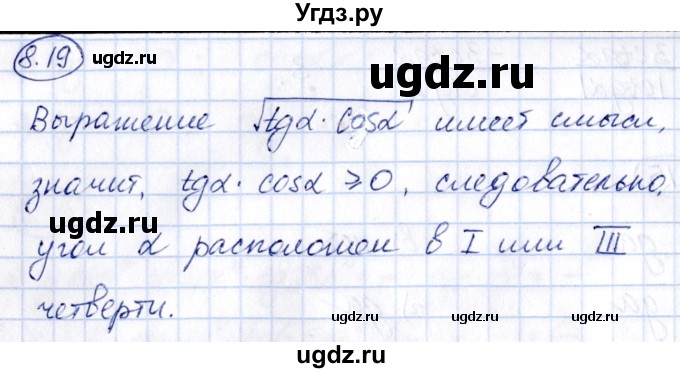 Угдз.ру
8.19
ugdz.ru
ugdz.ru
Выражение √tgα · cosα имеет смысл,
значит, tgα · cosα ⩾ 0, следовательно,
угол α расположен в I или III
четверти.
ugdz.ru
ugdz.ru
ugdz.ru
ugdz.ru